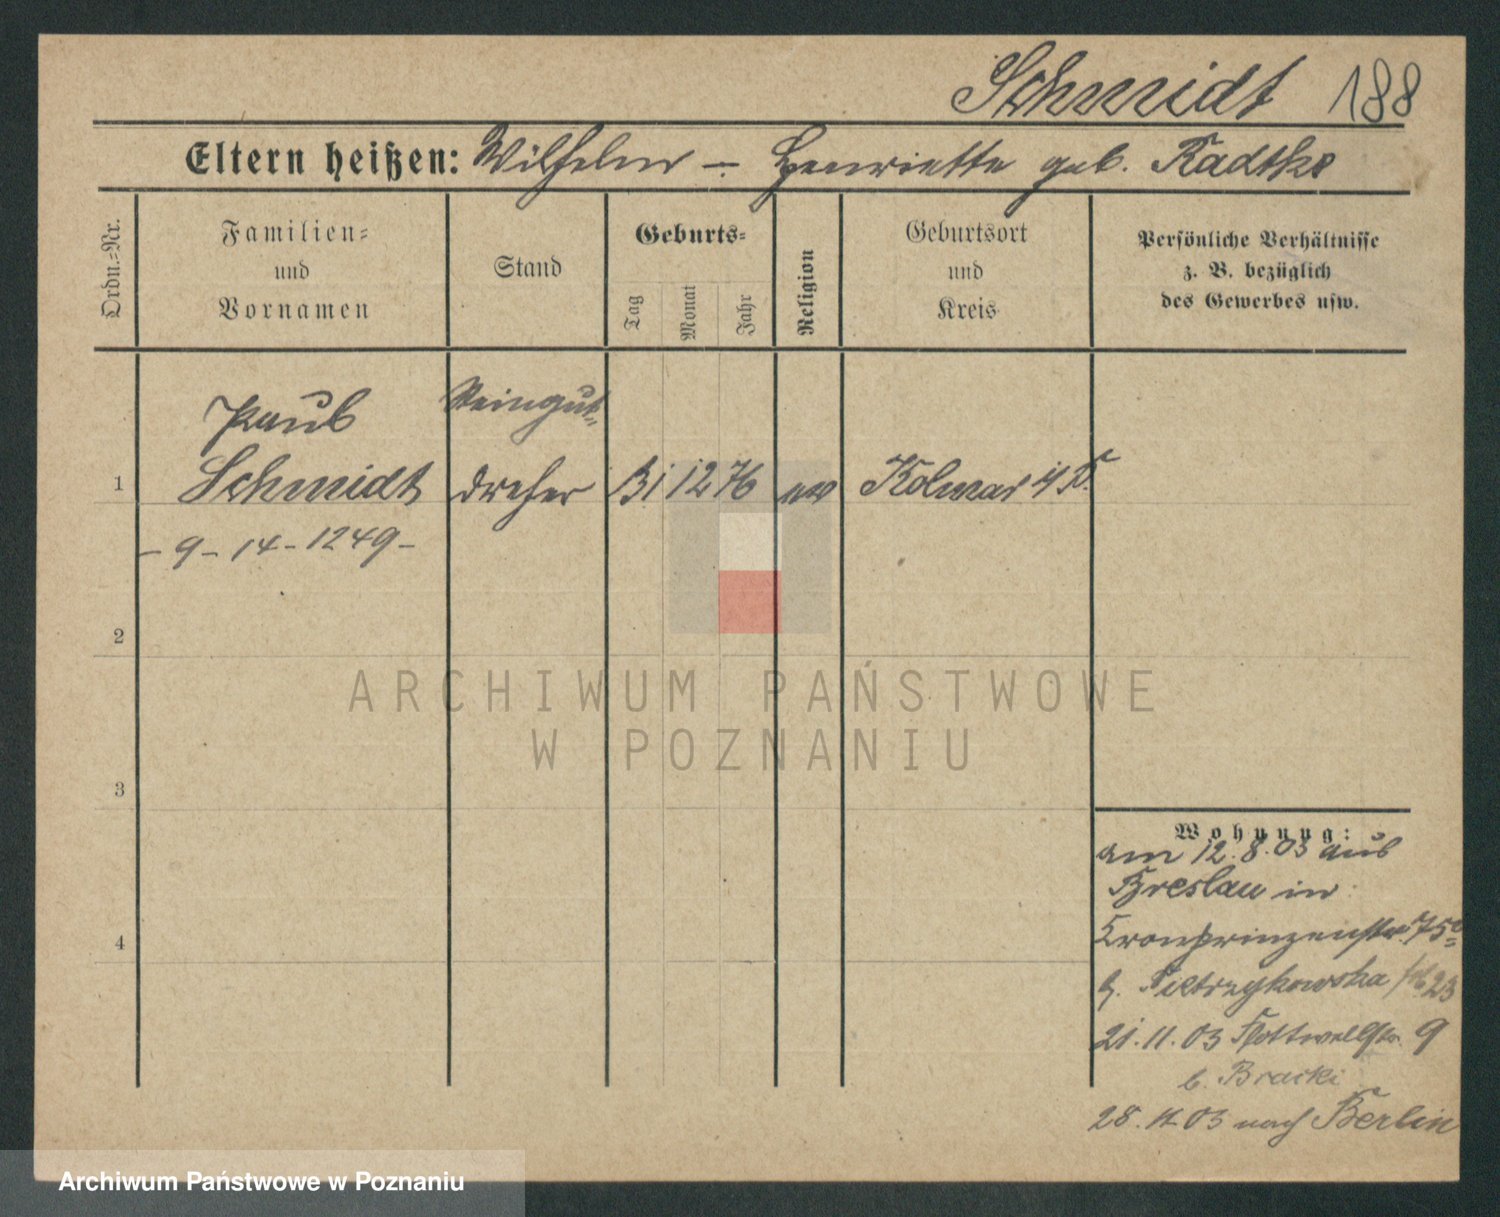 Schmidt 188
Eltern heißen: Wilhelm — Henriette geb. Radtke
Ordn.=Nr.
Familien=
und
Vornamen
Stand
Geburts=
Tag
Monat
Jahr
Religion
Geburtsort
und
Kreis
Persönliche Verhältnisse
z. B. bezüglich
des Gewerbes usw.
Paul Steingut-
1 Schmidt dreher 31 12 76 ev Kolmar i/P.
- 9 - 14 - 1249 -
2
3
4
Wohnung:
am 12.8.03 aus
Breslau in
Kronprinzenstr. 75a
b. Pietrzykowska
21.11.03 Flottwellstr. 9
b. Bracki
28. 11 03 nach Berlin
ARCHIWUM PAŃSTWOWE
W POZNANIU
Archiwum Państwowe w Poznaniu